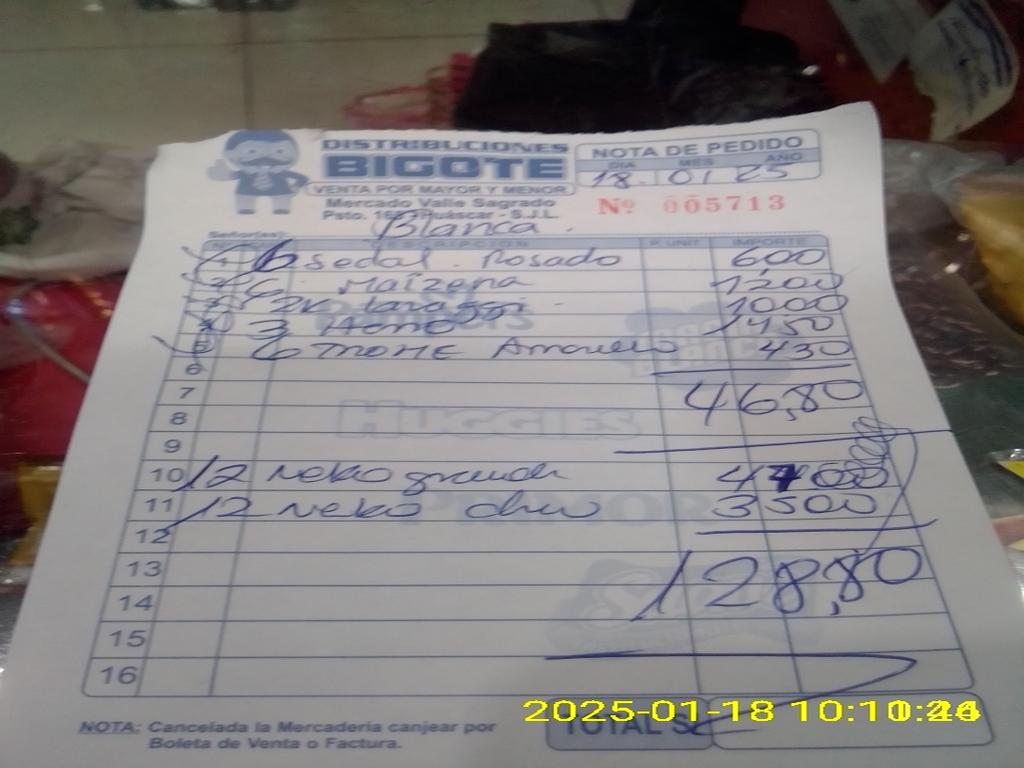 DISTRIBUCIONES
BIGOTE
VENTA POR MAYOR Y MENOR
Mercado Valle Sagrado
Psto. Huáscar - S.J.L.
NOTA DE PEDIDO
DIA MES AÑO
18 01 25
Nº 005713
Señor(es): Blanca
DESCRIPCION P. UNIT. IMPORTE
1 6 Sedal Rosado 6,00
2 6 Maizena 1200
3 2K 1000
4 3 1450
5 6 Amarillo 430
6
7 46,80
8
HUGGIES
9
10 12 neko grande 4700
11 12 neko chico 3500
12
13 128,80
14
15
16
TOTAL S/.
NOTA: Cancelada la Mercadería canjear por
Boleta de Venta o Factura.
2025-01-18 10:10